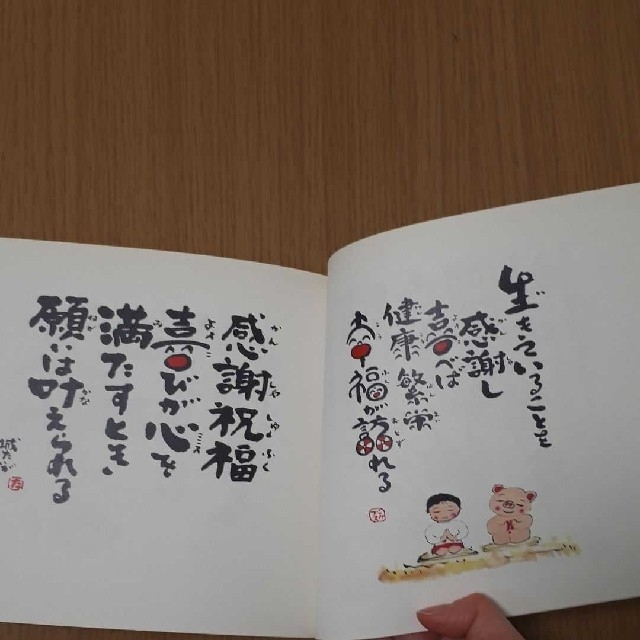 生きていることを
感謝し
喜べば
健康繁栄
幸福が訪れる
感謝祝福
喜びが心を
満たすとき
願いは叶えられる